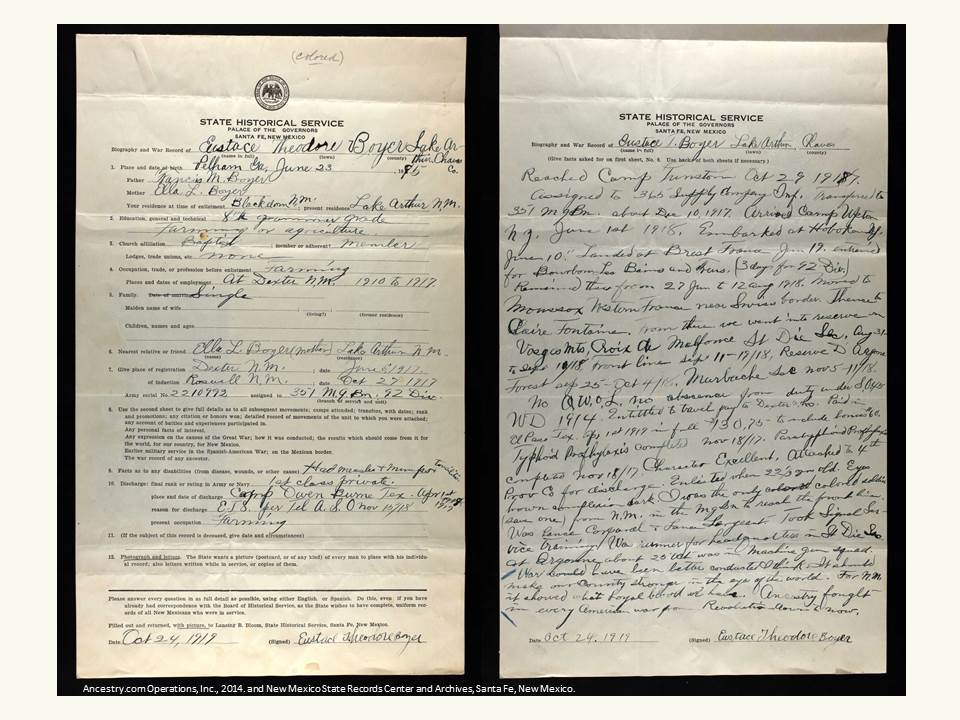 (colored)
STATE HISTORICAL SERVICE
PALACE OF THE GOVERNORS
SANTA FE, NEW MEXICO
Biography and War Record of Eustace Theodore Boyer Lake Ar-
(name in full) (town) (county) thur, Chaves
Co.
1. Place and date of birth Pelham Ga, June 23, 1895
Father Francis M. Boyer
Mother Ella L. Boyer
Your residence at time of enlistment Blackdom N.M. ; present residence Lake Arthur N.M.
2. Education, general and technical 8th grammer grade
Farming or agriculture
3. Church affiliation Baptist ; member or adherent? Member
Lodges, trade unions, etc. none
4. Occupation, trade, or profession before enlistment Farming
Places and dates of employment At Dexter N.M. 1910 to 1917.
5. Family. Date of marriage Single
Maiden name of wife
(living?) (former residence)
Children, names and ages
6. Nearest relative or friend Ella L. Boyer (mother) Lake Arthur N.M.
(name) (residence)
7. Give place of registration Dexter N.M. ; date June 5, 1917.
of induction Roswell N.M. ; date Oct 27 1917
Army serial No. 2210992 assigned to 351 M.G. Bn. 92 Div
(branch of service and unit)
8. Use the second sheet to give full details as to all subsequent movements; camps attended; transfers, with dates; rank
and promotions; any citation or honors won; detailed record of movements of the unit to which you were attached;
any account of battles and experiences participated in.
Any personal facts of interest.
Any expression on the causes of the Great War; how it was conducted; the results which should come from it for
the world, for our country, for New Mexico.
Earlier military service in the Spanish-American War; on the Mexican border.
The war record of any ancestor.
9. Facts as to any disabilities (from disease, wounds, or other cause) Had measles & mumps
10. Discharge: final rank or rating in Army or Navy 1st class private.
place and date of discharge Camp Owen Tex. Apr 1st
1919
reason for discharge E.T.S. per Tel A.G.O Nov 15/18
present occupation Farming
11. (If the subject of this record is deceased, give date and circumstances)
12. Photograph and letters. The State wants a picture (postcard, or of any kind) of every man to place with his individu-
al record; also letters written while in service, or copies of them.
Please answer every question in as full detail as possible, using either English, or Spanish. Do this, even if you have
already had correspondence with the Board of Historical Service, as the State wishes to have complete, uniform rec-
ords of all New Mexicans who were in service.
Filled out and returned, with picture, to Lansing B. Bloom, State Historical Service, Santa Fe, New Mexico.
Date Oct 24, 1919 (Signed) Eustace Theodore Boyer
STATE HISTORICAL SERVICE
PALACE OF THE GOVERNORS
SANTA FE, NEW MEXICO
Biography and War Record of Eustace T. Boyer Lake Arthur Chaves
(name in full) (town) (county)
(Give facts asked for on first sheet, No. 8. Use back of both sheets if necessary.)
Reached Camp Funston Oct 29 1917.
Assigned to 365 Supply Company Inf. Transfered to
351 M.G.Bn. about Dec 10, 1917. Arrived Camp Upton
N.Y. June 1st 1918. Embarked at Hoboken N.J.
June 10. Landed at Brest France Jun 19. entrained
for Bourbon Les Bains and (3 days for 92 Div.)
Remained there from 27 Jun to 12 aug 1918. Moved to
Western France near Swiss border. Thence to
Claire Fontaine. From there we went into reserve in
Vosges Mts, St Die Sec. Aug 31-
to Sept 10/18 front line Sept 11-17/18, Reserve D Argonne
Forest sep 25-Oct 4/18. Marbache Sec nov 5-11/18.
No A.W.O.L. no abscence from duty under
WD 1914. Entitled to travel pay to Dexter N.M. Paid in
El Paso Tex. Apr 1st 1919 in full $130,75 to include bonus 60.
Typhoid Prophylaxis completed nov 18/17. Paratyphoid Prophylaxis
completed Nov 18/17 Character Excellent. Attached to 4
Prov Co for discharge. Enlisted when 22 yr old. Eyes
brown complexion dark I was the only colored soldier
(save one) from N.M. in the M.G.Bn to reach the front line.
Was Lance Corporal & Lance Sergeant. Took Signal Ser-
vice training. Was runner for headquarters in St Die Sec.
at Argonne about 25 Oct was in machine gun squad.
War could have been better conducted I think. It should
make our County stronger in the eye of the world. For N.M.
it showed what loyal blood we have. Ancestry fought
in every American war from Revolution down to now.
Date Oct 24, 1919 (Signed) Eustace Theodore Boyer
Ancestry.com Operations, Inc., 2014. and New Mexico State Records Center and Archives, Santa Fe, New Mexico.